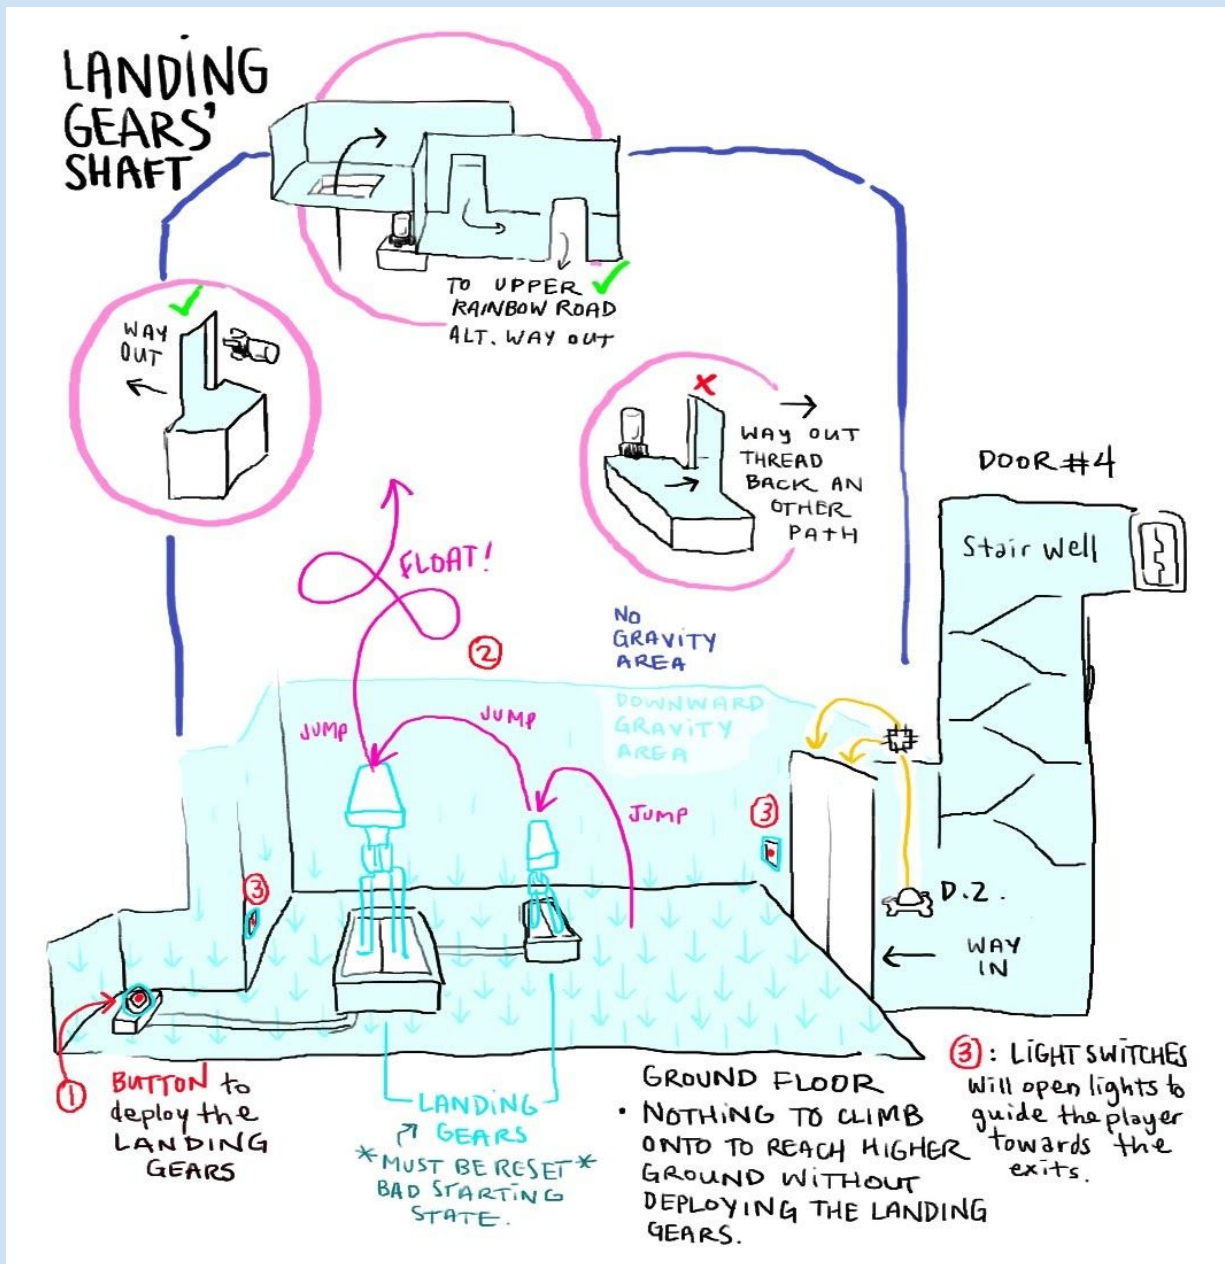 LANDING
GEARS'
SHAFT
TO UPPER
RAINBOW ROAD
ALT. WAY OUT
WAY
OUT
WAY OUT
THREAD
BACK AN
OTHER
PATH
DOOR #4
Stair Well
FLOAT!
NO
GRAVITY
AREA
2
DOWNWARD
GRAVITY
AREA
JUMP
JUMP
JUMP
3
3
D.2.
WAY
IN
1
BUTTON to
deploy the
LANDING
GEARS
LANDING
GEARS
*MUST BE RESET*
BAD STARTING
STATE.
GROUND FLOOR
• NOTHING TO CLIMB
ONTO TO REACH HIGHER
GROUND WITHOUT
DEPLOYING THE LANDING
GEARS.
3 : LIGHT SWITCHES
will open lights to
guide the player
towards the
exits.